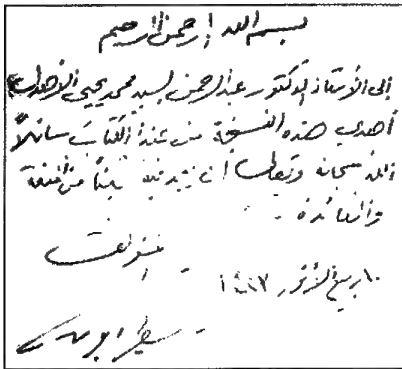 بسم الله الرحمن الرحيم
إلى الأستاذ الدكتور عبد الرحمن السيد محمد يحيى الأهدل
أهدي هذه النسخة من هذا الكتاب سائلاً
الله سبحانه وتعالى أن
والفائدة .
المؤلف
١٠ ربيع الأنور